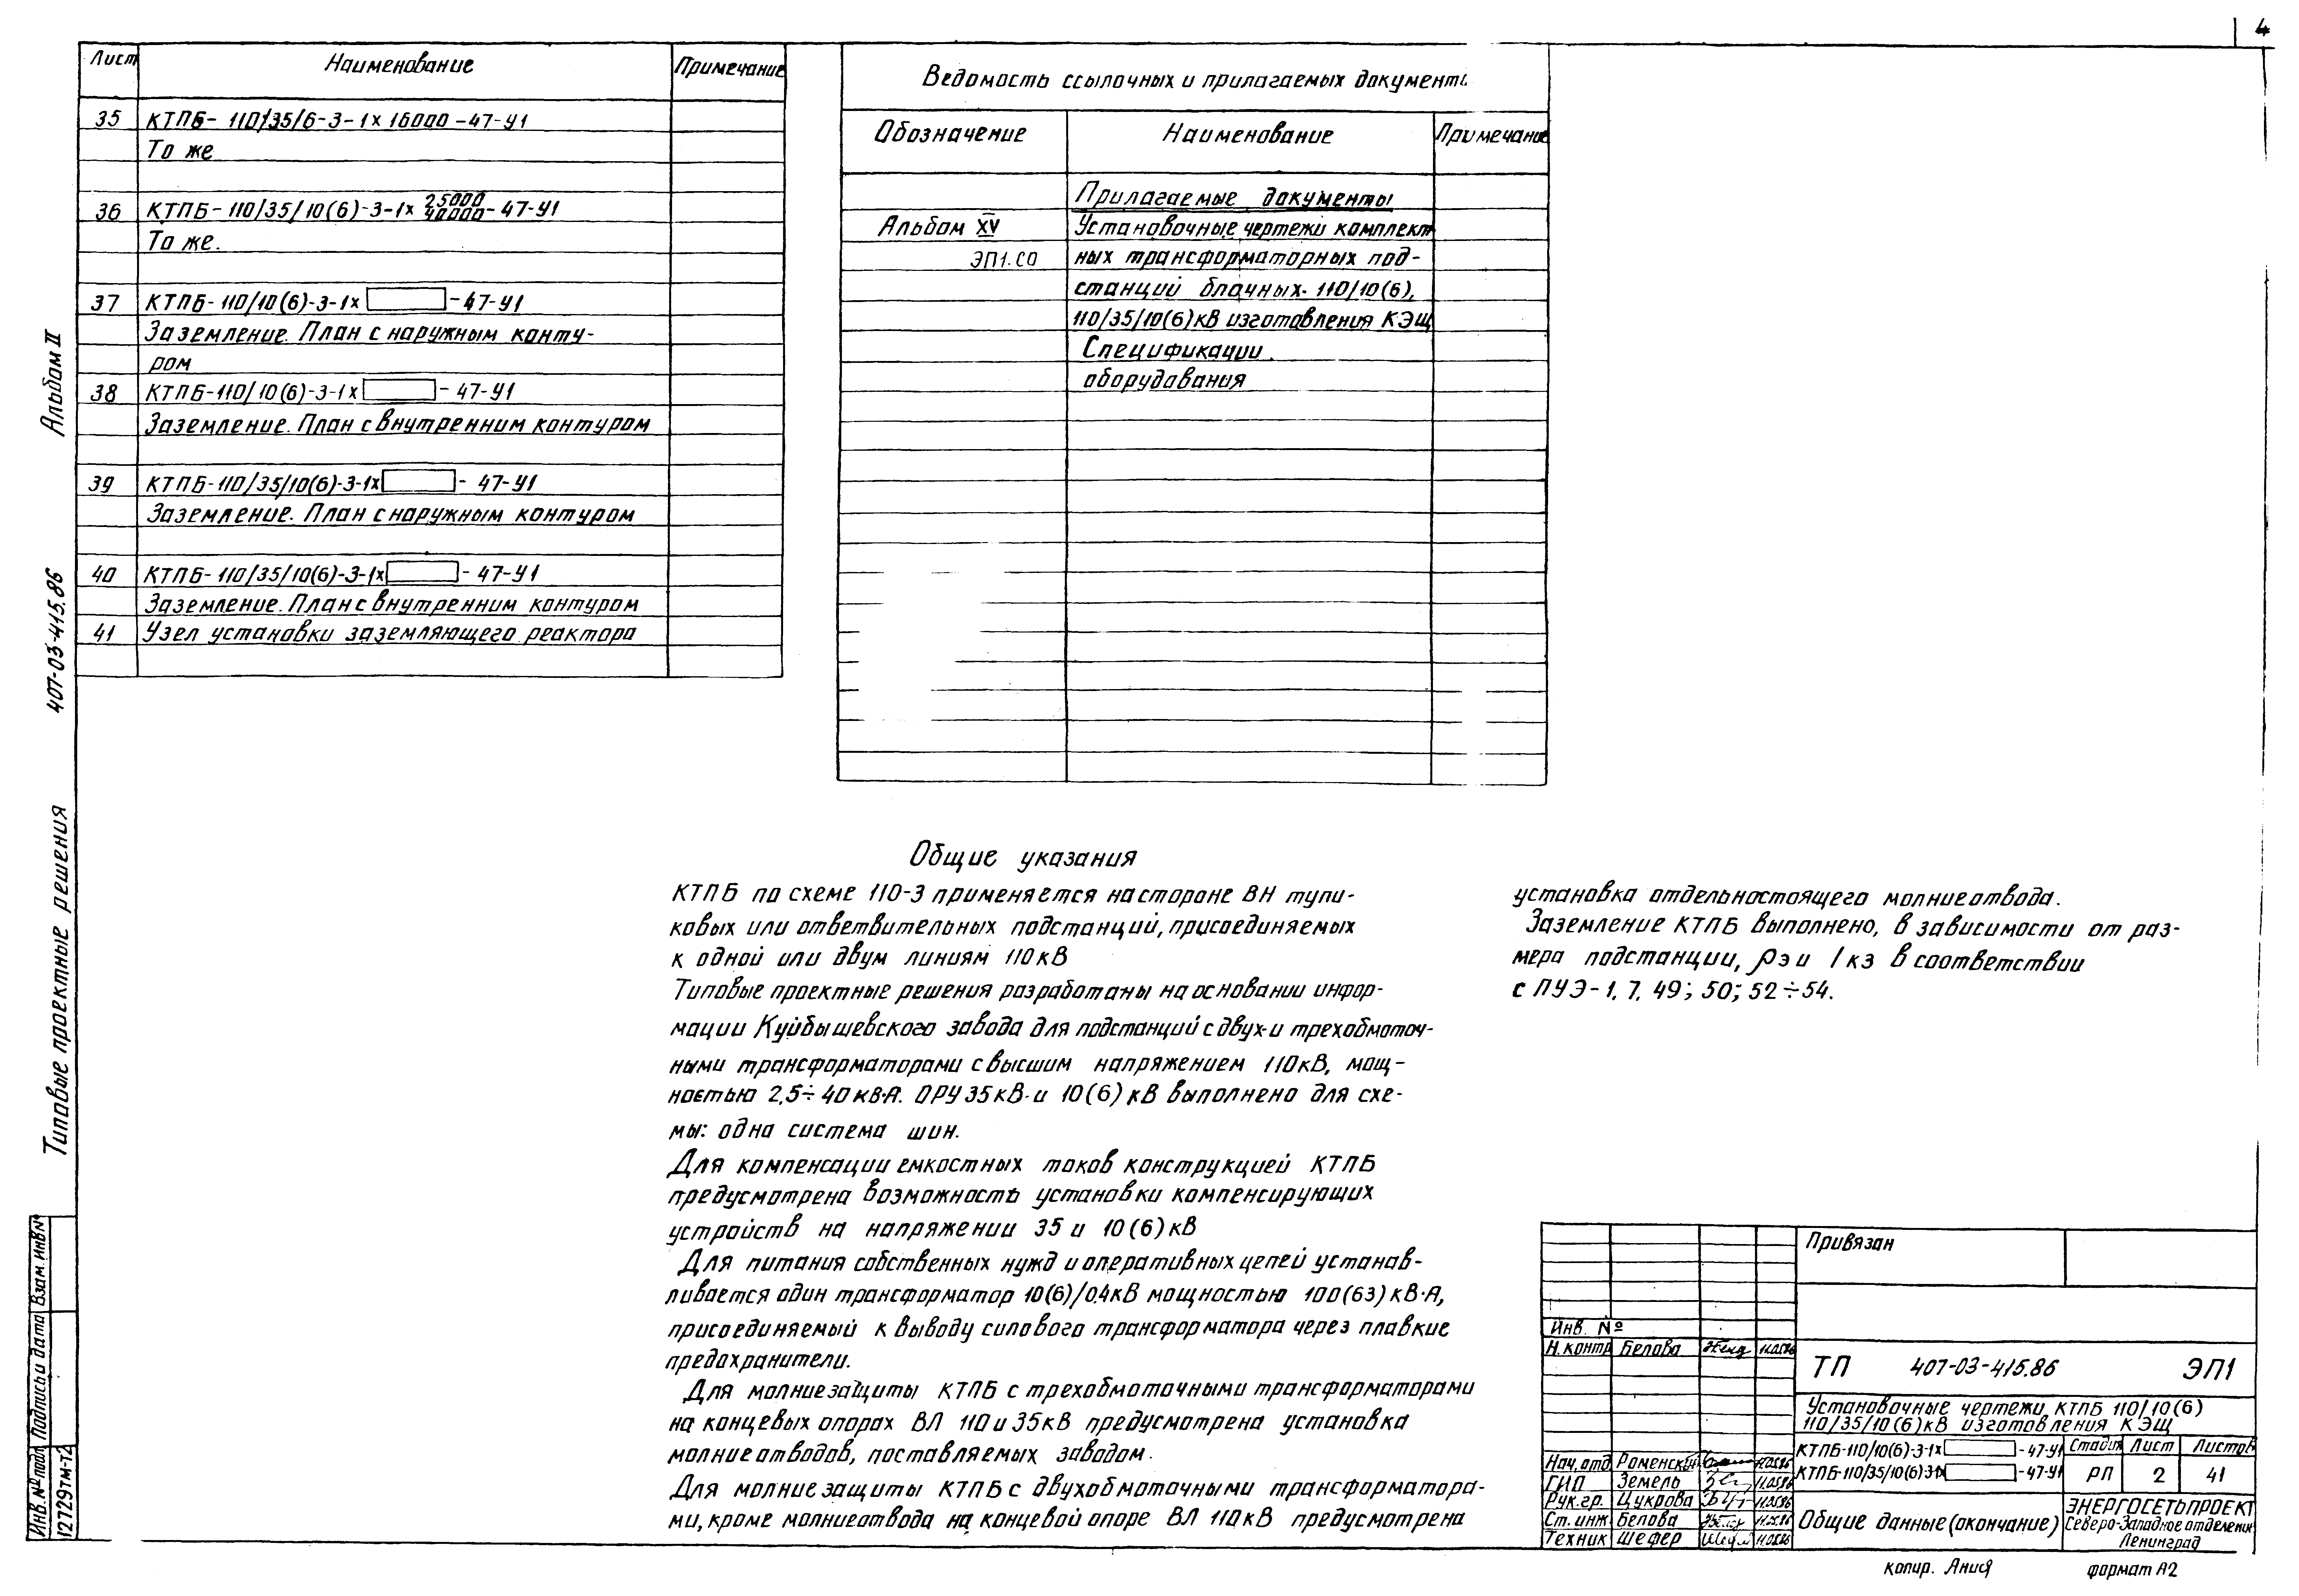 4
Лист Наименование Примечание
35 КТПБ- 110/35/6-3-1х16000-47-У1
То же
36 КТПБ-110/35/10(6)-3-1х 25000/40000-47-У1
То же.
37 КТПБ-110/10(6)-3-1х -47-У1
Заземление. План с наружным конту-
ром
38 КТПБ-110/10(6)-3-1х - 47-У1
Заземление. План с внутренним контуром
39 КТПБ-110/35/10(6)-3-1х - 47-У1
Заземление. План с наружным контуром
40 КТПБ-110/35/10(6)-3-1х - 47-У1
Заземление. План с внутренним контуром
41 Узел установки заземляющего реактора
Ведомость ссылочных и прилагаемых документ
Обозначение Наименование Примечание
Прилагаемые документы
Альбом XV Установочные чертежи комплект
ЭП1.СО ных трансформаторных под-
станций блочных 110/10(6),
110/35/10(6)кВ изготовления КЭЩ
Спецификации
оборудования
Общие указания
КТПБ по схеме 110-3 применяется на стороне ВН тупи-
ковых или ответвительных подстанций, присоединяемых
к одной или двум линиям 110кВ
Типовые проектные решения разработаны на основании инфор-
мации Куйбышевского завода для подстанций с двух- и трехобмоточ-
ными трансформаторами с высшим напряжением 110кВ, мощ-
ностью 2,5÷40кВ·А. ОРУ 35кВ и 10(6)кВ выполнено для схе-
мы: одна система шин.
Для компенсации емкостных токов конструкцией КТПБ
предусмотрена возможность установки компенсирующих
устройств на напряжении 35 и 10(6)кВ
Для питания собственных нужд и оперативных цепей устанав-
ливается один трансформатор 10(6)/0,4кВ мощностью 100(63)кВ·А,
присоединяемый к выводу силового трансформатора через плавкие
предохранители.
Для молниезащиты КТПБ с трехобмоточными трансформаторами
на концевых опорах ВЛ 110 и 35кВ предусмотрена установка
молниеотводов, поставляемых заводом.
Для молниезащиты КТПБ с двухобмоточными трансформатора-
ми, кроме молниеотвода на концевой опоре ВЛ 110кВ предусмотрена
установка отдельностоящего молниеотвода.
Заземление КТПБ выполнено, в зависимости от раз-
мера подстанции, ρэ и Iкз в соответствии
с ПУЭ-1.7.49; 50; 52÷54.
Альбом II
407-03-415.86
Типовые проектные решения
Взам. инв №
Подпись и дата
Инв. № подл.
12729тм-т2
Привязан
Инв. №
Н.контр Белова 11.05.86
ТП 407-03-415.86 ЭП1
Установочные чертежи КТПБ 110/10(6)
110/35/10(6)кВ изготовления КЭЩ
КТПБ-110/10(6)-3-1х -47-У1 Стадия Лист Листов
КТПБ-110/35/10(6)-3-1х -47-У1 РП 2 41
Нач.отд Роменский 11.05.86
ГИП Земель 11.05.86
Рук.гр. Цукрова 11.05.86
Ст. инж Белова 11.05.86
Техник Шефер 11.05.86
Общие данные (окончание)
ЭНЕРГОСЕТЬПРОЕКТ
Северо-Западное отделение
Ленинград
копир. Анис
формат А2